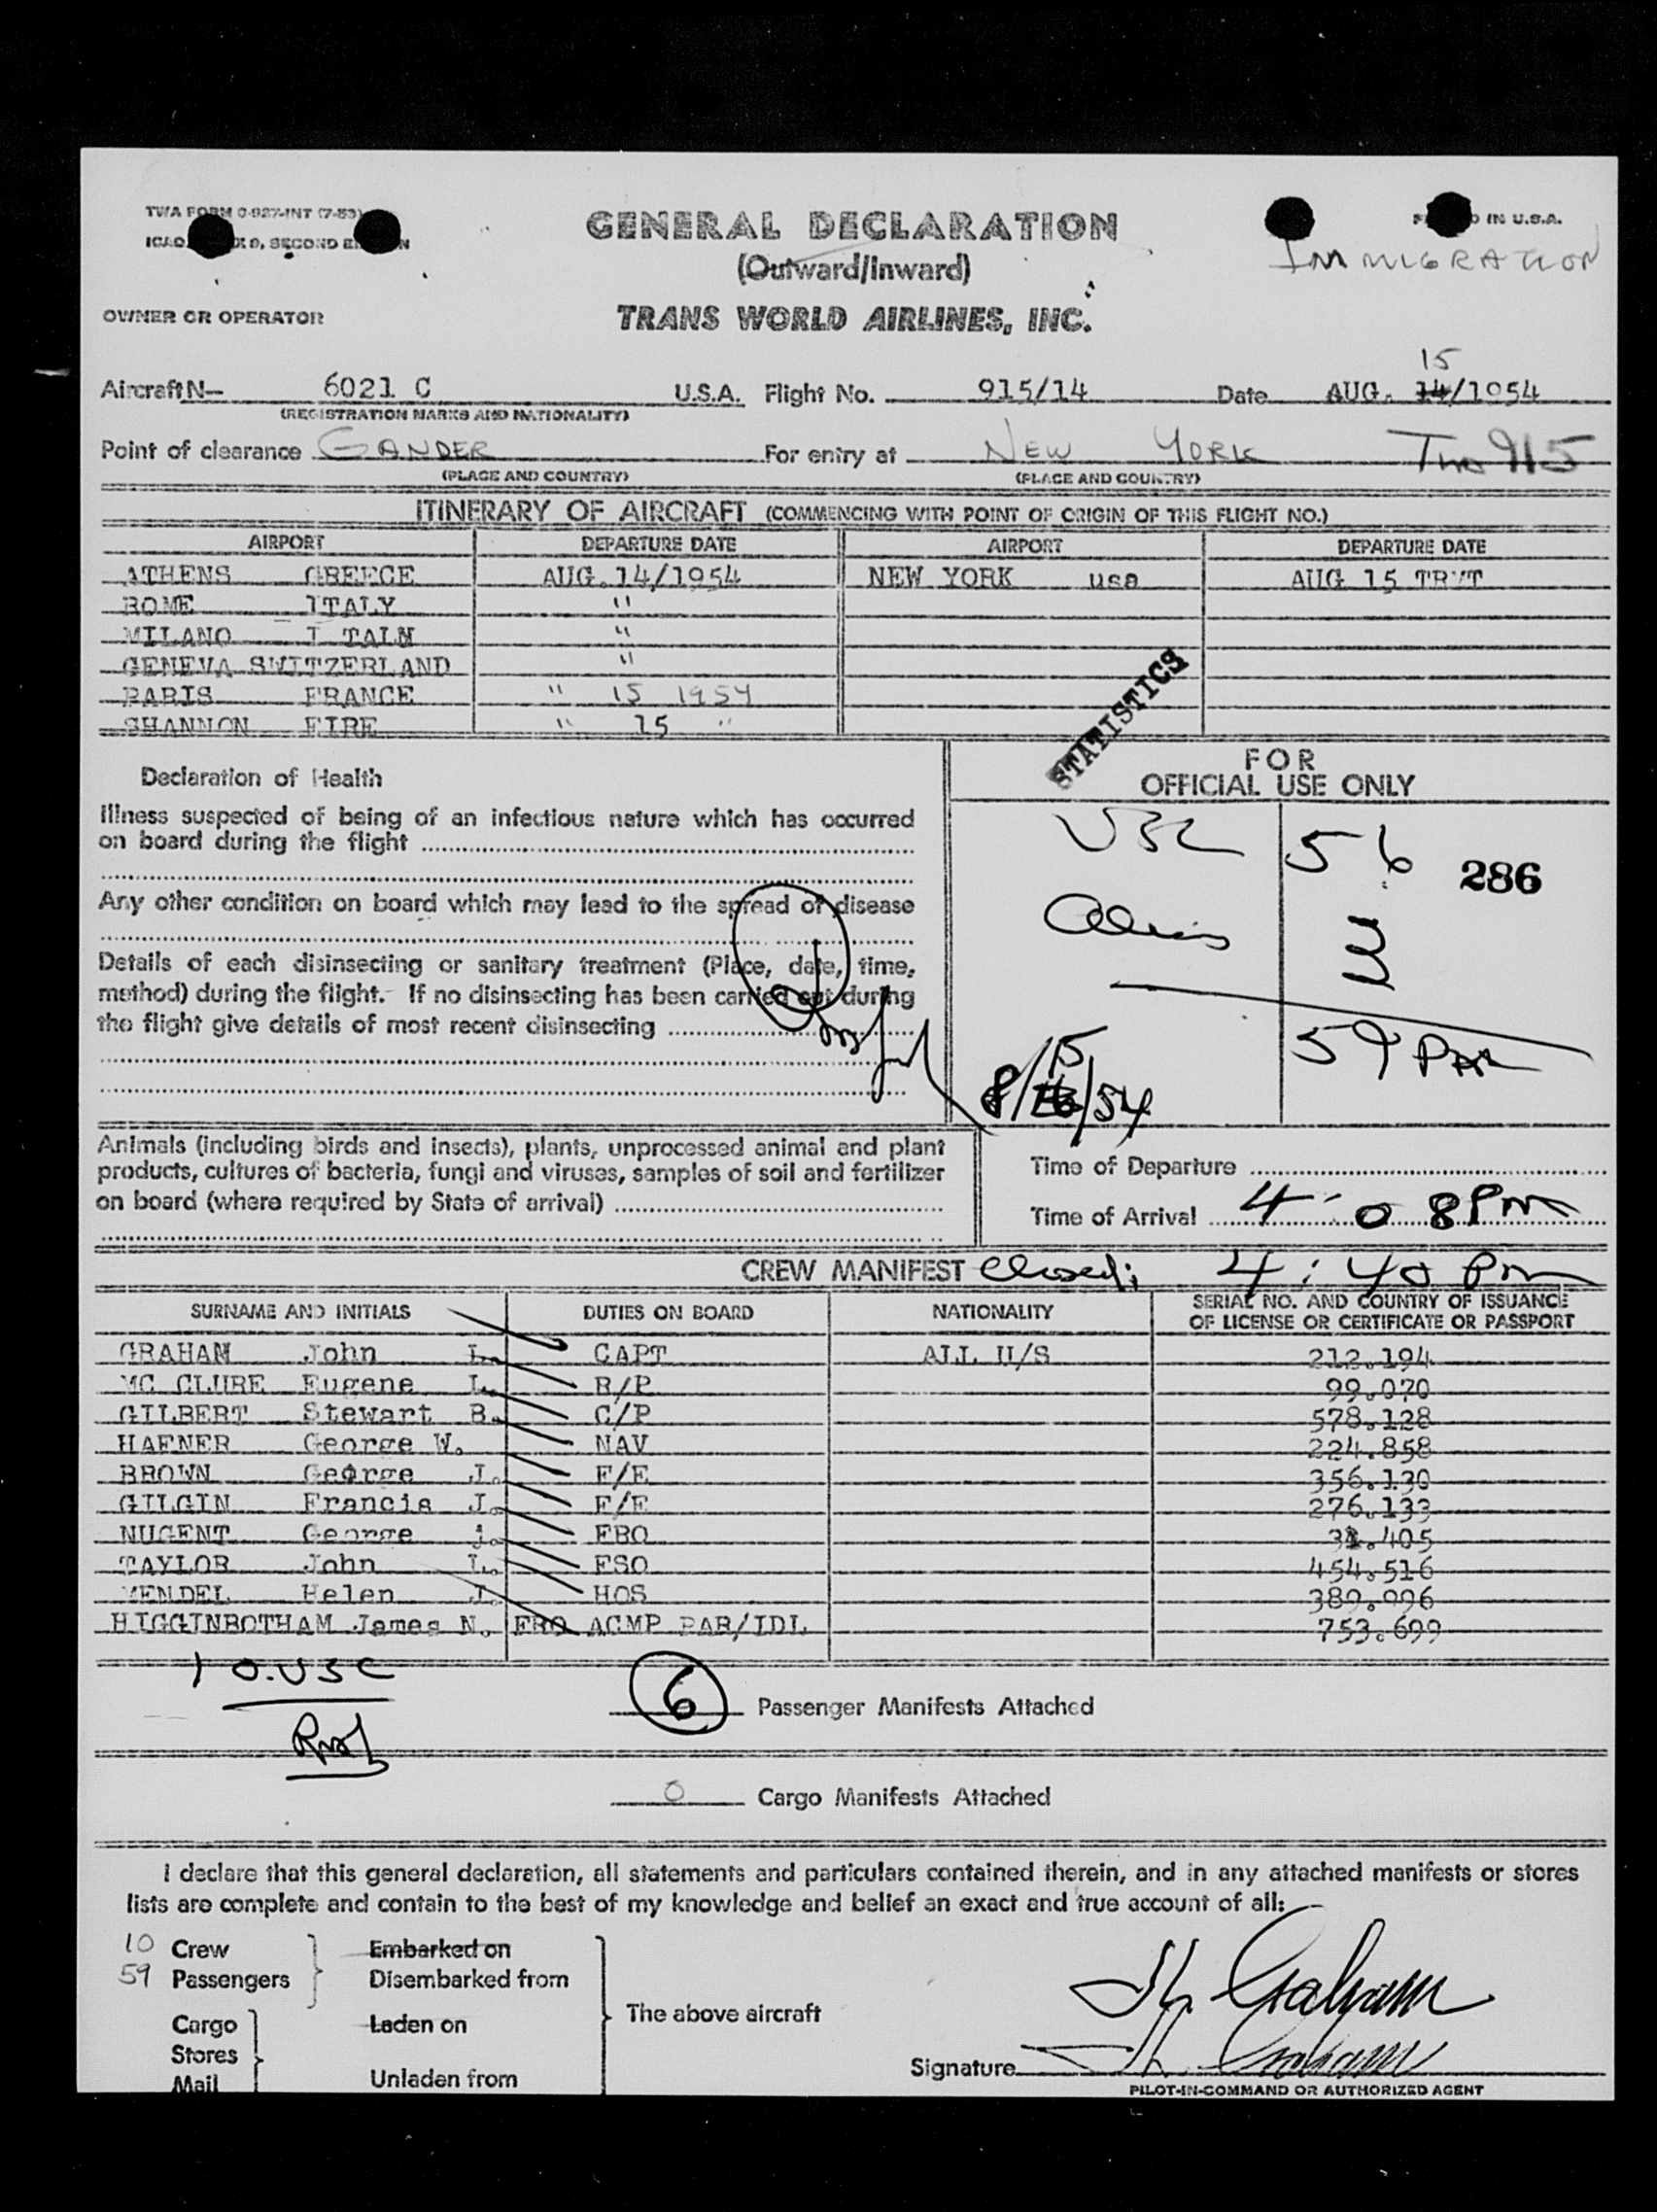 TWA FORM O-927-INT (7-53)
GENERAL DECLARATION
IN U.S.A.
(Outward/Inward)
IMMIGRATION
OWNER OR OPERATOR
TRANS WORLD AIRLINES, INC.
15
Aircraft N— 6021 C U.S.A. Flight No. 915/14 Date AUG. 14/1954
(REGISTRATION MARKS AND NATIONALITY)
Point of clearance GANDER For entry at NEW YORK 915
(PLACE AND COUNTRY) (PLACE AND COUNTRY)
ITINERARY OF AIRCRAFT (COMMENCING WITH POINT OF ORIGIN OF THIS FLIGHT NO.)
AIRPORT DEPARTURE DATE AIRPORT DEPARTURE DATE
ATHENS GREECE AUG.14/1954 NEW YORK usa AUG 15 TRVT
ROME ITALY "
MILANO I TALN "
GENEVA SWITZERLAND "
PARIS FRANCE " 15 1954
SHANNON EIRE " 15 "
STATISTICS
FOR
OFFICIAL USE ONLY
Declaration of Health
Illness suspected of being of an infectious nature which has occurred
on board during the flight
USC 56 286
Any other condition on board which may lead to the spread of disease
Aliens 3
Details of each disinsecting or sanitary treatment (Place, date, time,
method) during the flight. If no disinsecting has been carried out during
the flight give details of most recent disinsecting
59
15
8/16/54
Animals (including birds and insects), plants, unprocessed animal and plant
products, cultures of bacteria, fungi and viruses, samples of soil and fertilizer
on board (where required by State of arrival)
Time of Departure
Time of Arrival 4:08 PM
CREW MANIFEST Closed: 4:40 Pm
SURNAME AND INITIALS DUTIES ON BOARD NATIONALITY SERIAL NO. AND COUNTRY OF ISSUANCE
OF LICENSE OR CERTIFICATE OR PASSPORT
GRAHAM John L. CAPT ALL U/S 212.194
MC CLURE Eugene L. R/P 99.070
GILBERT Stewart B. C/P 578.128
HAFNER George W. NAV 224.858
BROWN George J. F/E 356.130
GILGIN Francis J. F/E 276.133
NUGENT George j. FRO 31.405
TAYLOR John L. FSO 454.516
MENDEL Helen J. HOS 389.996
HIGGINBOTHAM James N. FRO ACMP PAR/IDL 753.699
10.USC
6 Passenger Manifests Attached
0 Cargo Manifests Attached
I declare that this general declaration, all statements and particulars contained therein, and in any attached manifests or stores
lists are complete and contain to the best of my knowledge and belief an exact and true account of all:
10 Crew Embarked on
59 Passengers Disembarked from
The above aircraft
Cargo Laden on
Stores
Mail Unladen from
Signature
PILOT-IN-COMMAND OR AUTHORIZED AGENT